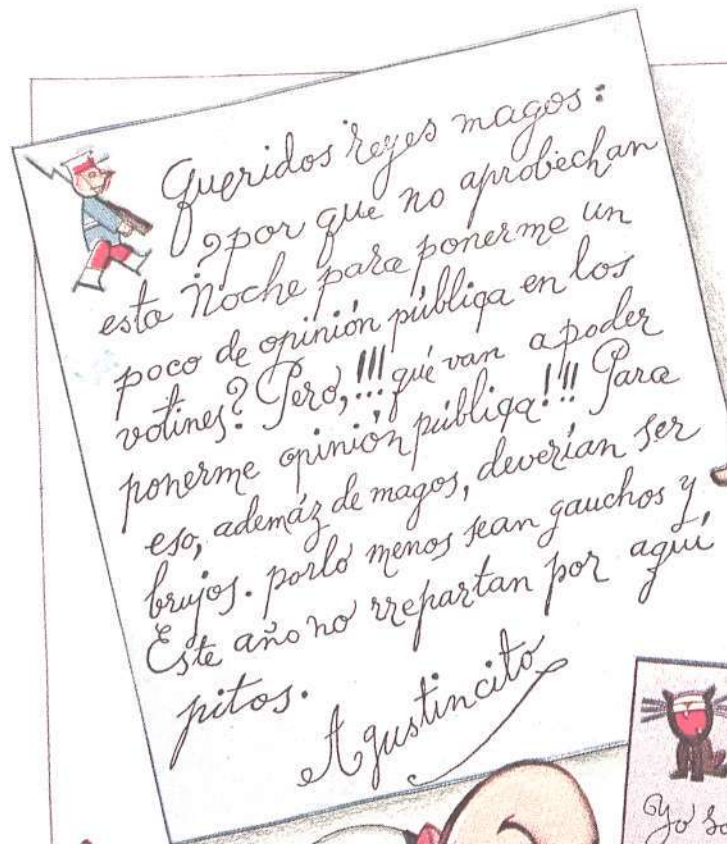 Queridos reyes magos:
¿por que no aprobechan
esta noche para ponerme un
poco de opinión públiqa en los
votines? Pero, ¡¡¡qué van a poder
ponerme opinión públiqa!!! Para
eso, ademáz de magos, deverían ser
brujos. porlo menos sean gauchos y
Este año no rrepartan por aquí
pitos.
Agustincito
Yo so